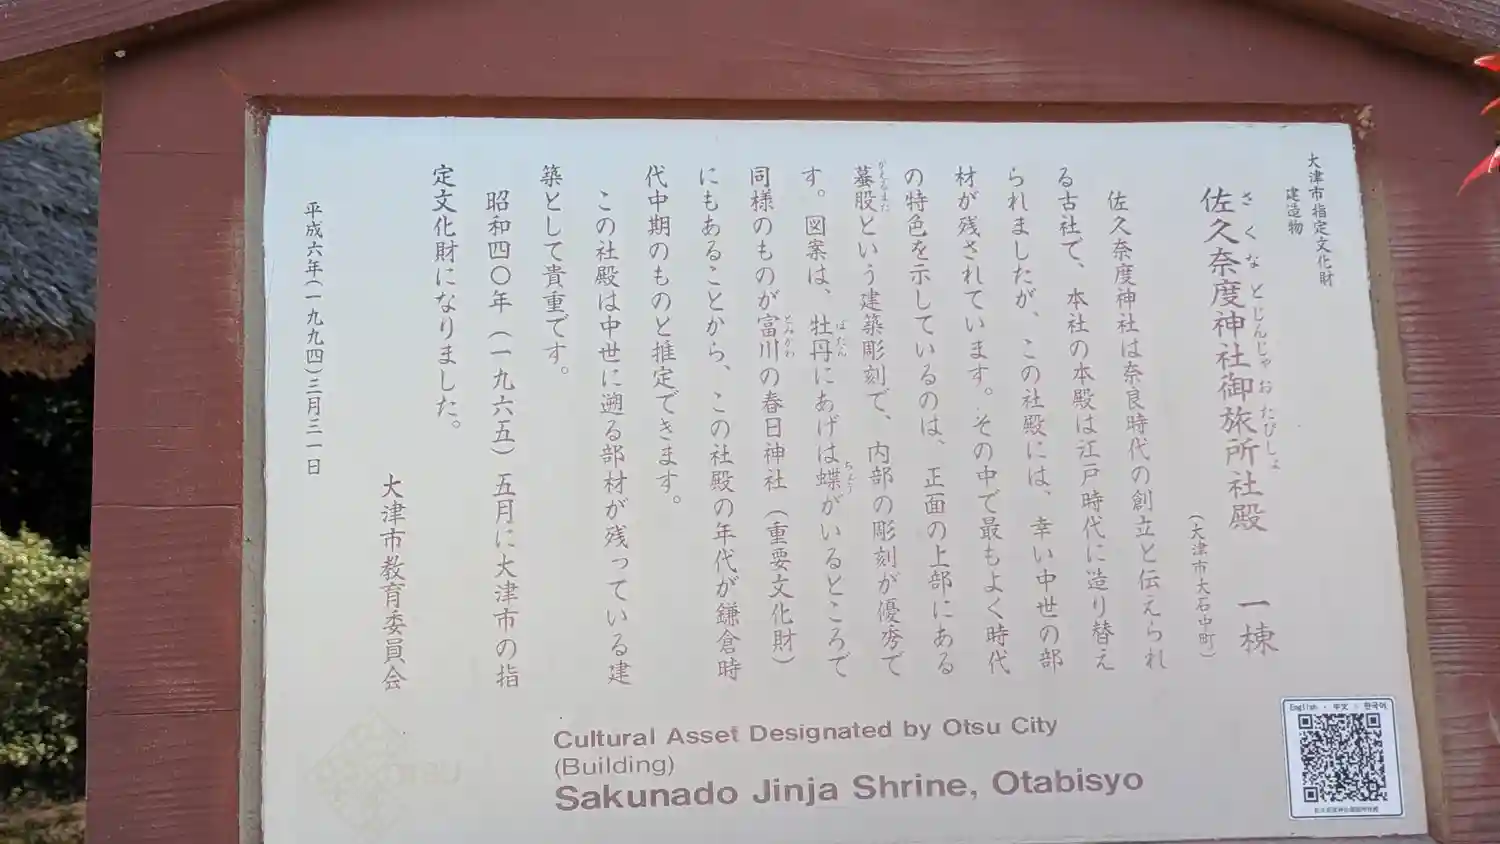 大津市指定文化財
建造物
さくなどじんじゃおたびしょ
佐久奈度神社御旅所社殿 一棟
(大津市大石中町)
佐久奈度神社は奈良時代の創立と伝えられ
る古社で、本社の本殿は江戸時代に造り替え
られましたが、この社殿には、幸い中世の部
材が残されています。その中で最もよく時代
の特色を示しているのは、正面の上部にある
かえるまた
蟇股という建築彫刻で、内部の彫刻が優秀で
す。図案は、牡丹にあげは蝶がいるところで
ぼたん
ちょう
同様のものが富川の春日神社(重要文化財)
とみかわ
にもあることから、この社殿の年代が鎌倉時
代中期のものと推定できます。
この社殿は中世に遡る部材が残っている建
築として貴重です。
昭和四〇年(一九六五)五月に大津市の指
定文化財になりました。
大津市教育委員会
平成六年(一九九四)三月三一日
Cultural Asset Designated by Otsu City
(Building)
Sakunado Jinja Shrine, Otabisyo
English ・ 中文 ・ 한국어